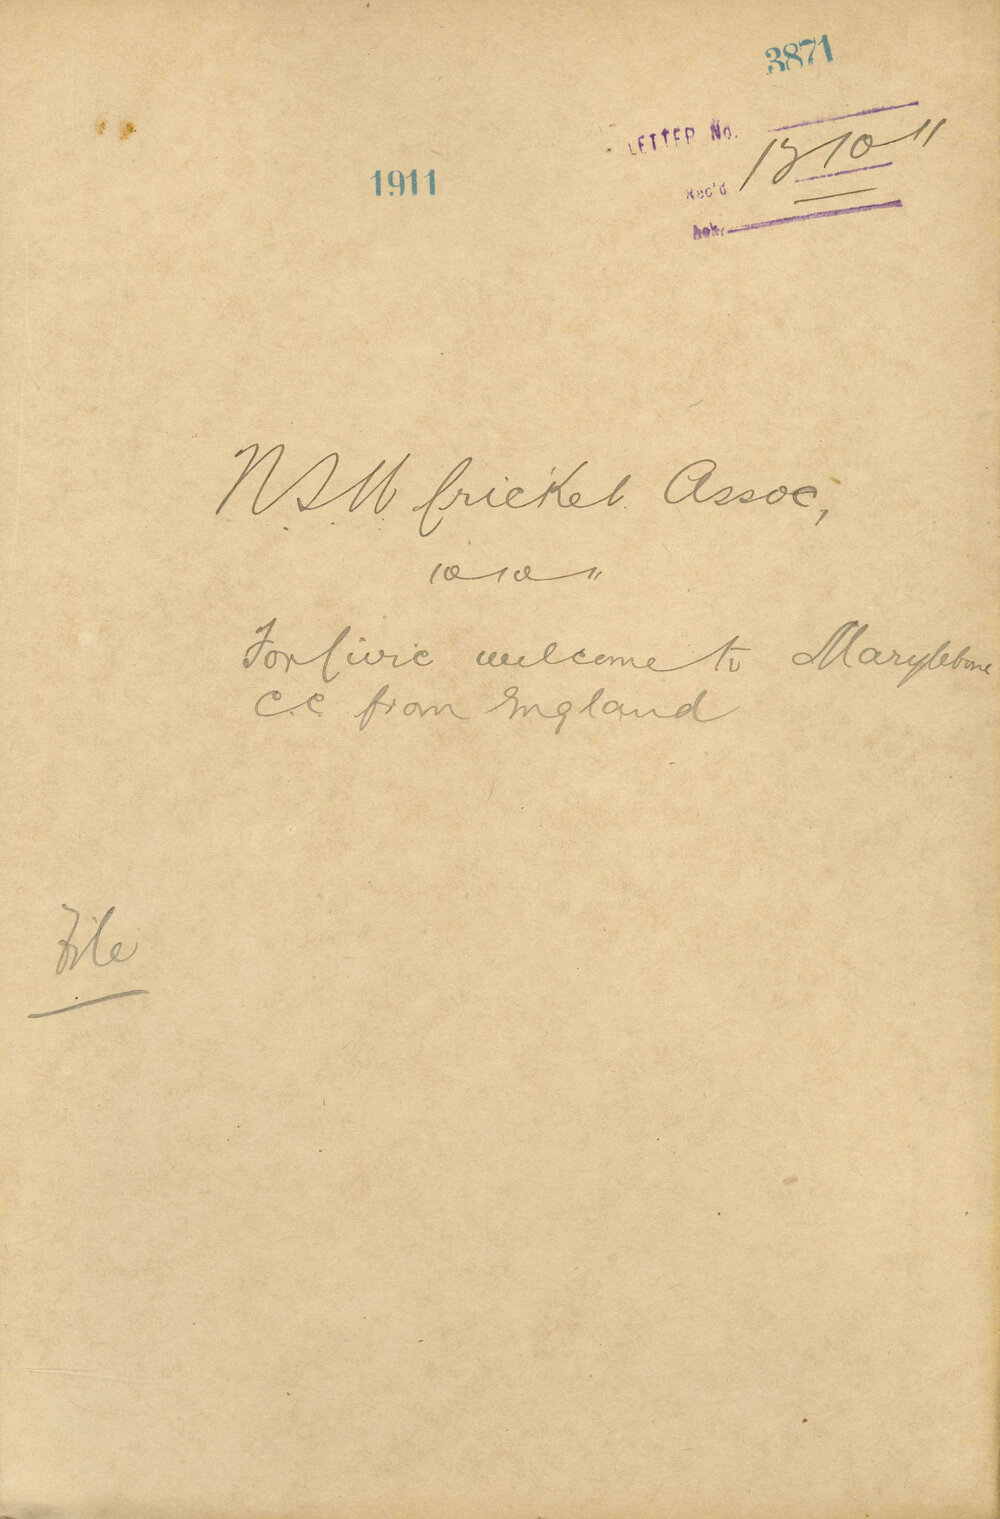 3871
LETTER No.
1911
Rec'd 13/10/11
Ack.
N.S.W. Cricket Assoc,
10/10/11
For Civic welcome to Marylebone
C.C. from England
File